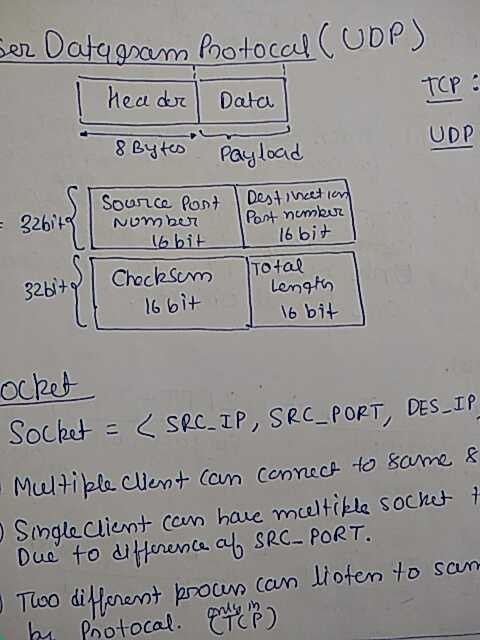 ser Datagram Protocal (UDP)
Header Data
TCP :
8 Bytes Payload
UDP
= 32bit
Source Port Number 16 bit
Destination Port number 16 bit
32bit
Checksum 16 bit
Total Length 16 bit
ocket
Socket = < SRC_IP, SRC_PORT, DES_IP,
) Multiple client can connect to same s
) Single client can have multiple socket t
Due to difference of SRC_PORT.
) Two different process can listen to sam
by Protocal. (only in TCP)